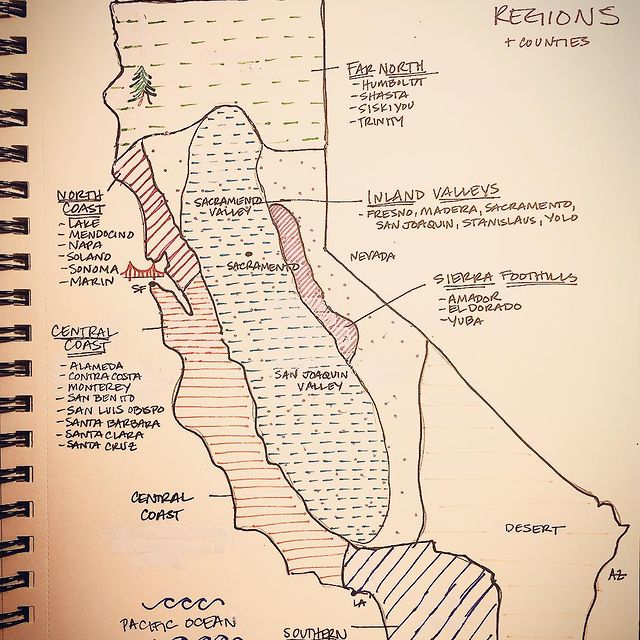 REGIONS
+ COUNTIES
FAR NORTH
- HUMBOLDT
- SHASTA
- SISKIYOU
- TRINITY
NORTH
COAST
- LAKE
- MENDOCINO
- NAPA
- SOLANO
- SONOMA
- MARIN
SF
SACRAMENTO
VALLEY
SACRAMENTO
INLAND VALLEYS
- FRESNO, MADERA, SACRAMENTO,
SAN JOAQUIN, STANISLAUS, YOLO
NEVADA
SIERRA FOOTHILLS
- AMADOR
- EL DORADO
- YUBA
CENTRAL
COAST
- ALAMEDA
- CONTRA COSTA
- MONTEREY
- SAN BENITO
- SAN LUIS OBISPO
- SANTA BARBARA
- SANTA CLARA
- SANTA CRUZ
SAN JOAQUIN
VALLEY
CENTRAL
COAST
DESERT
AZ
LA
PACIFIC OCEAN
SOUTHERN